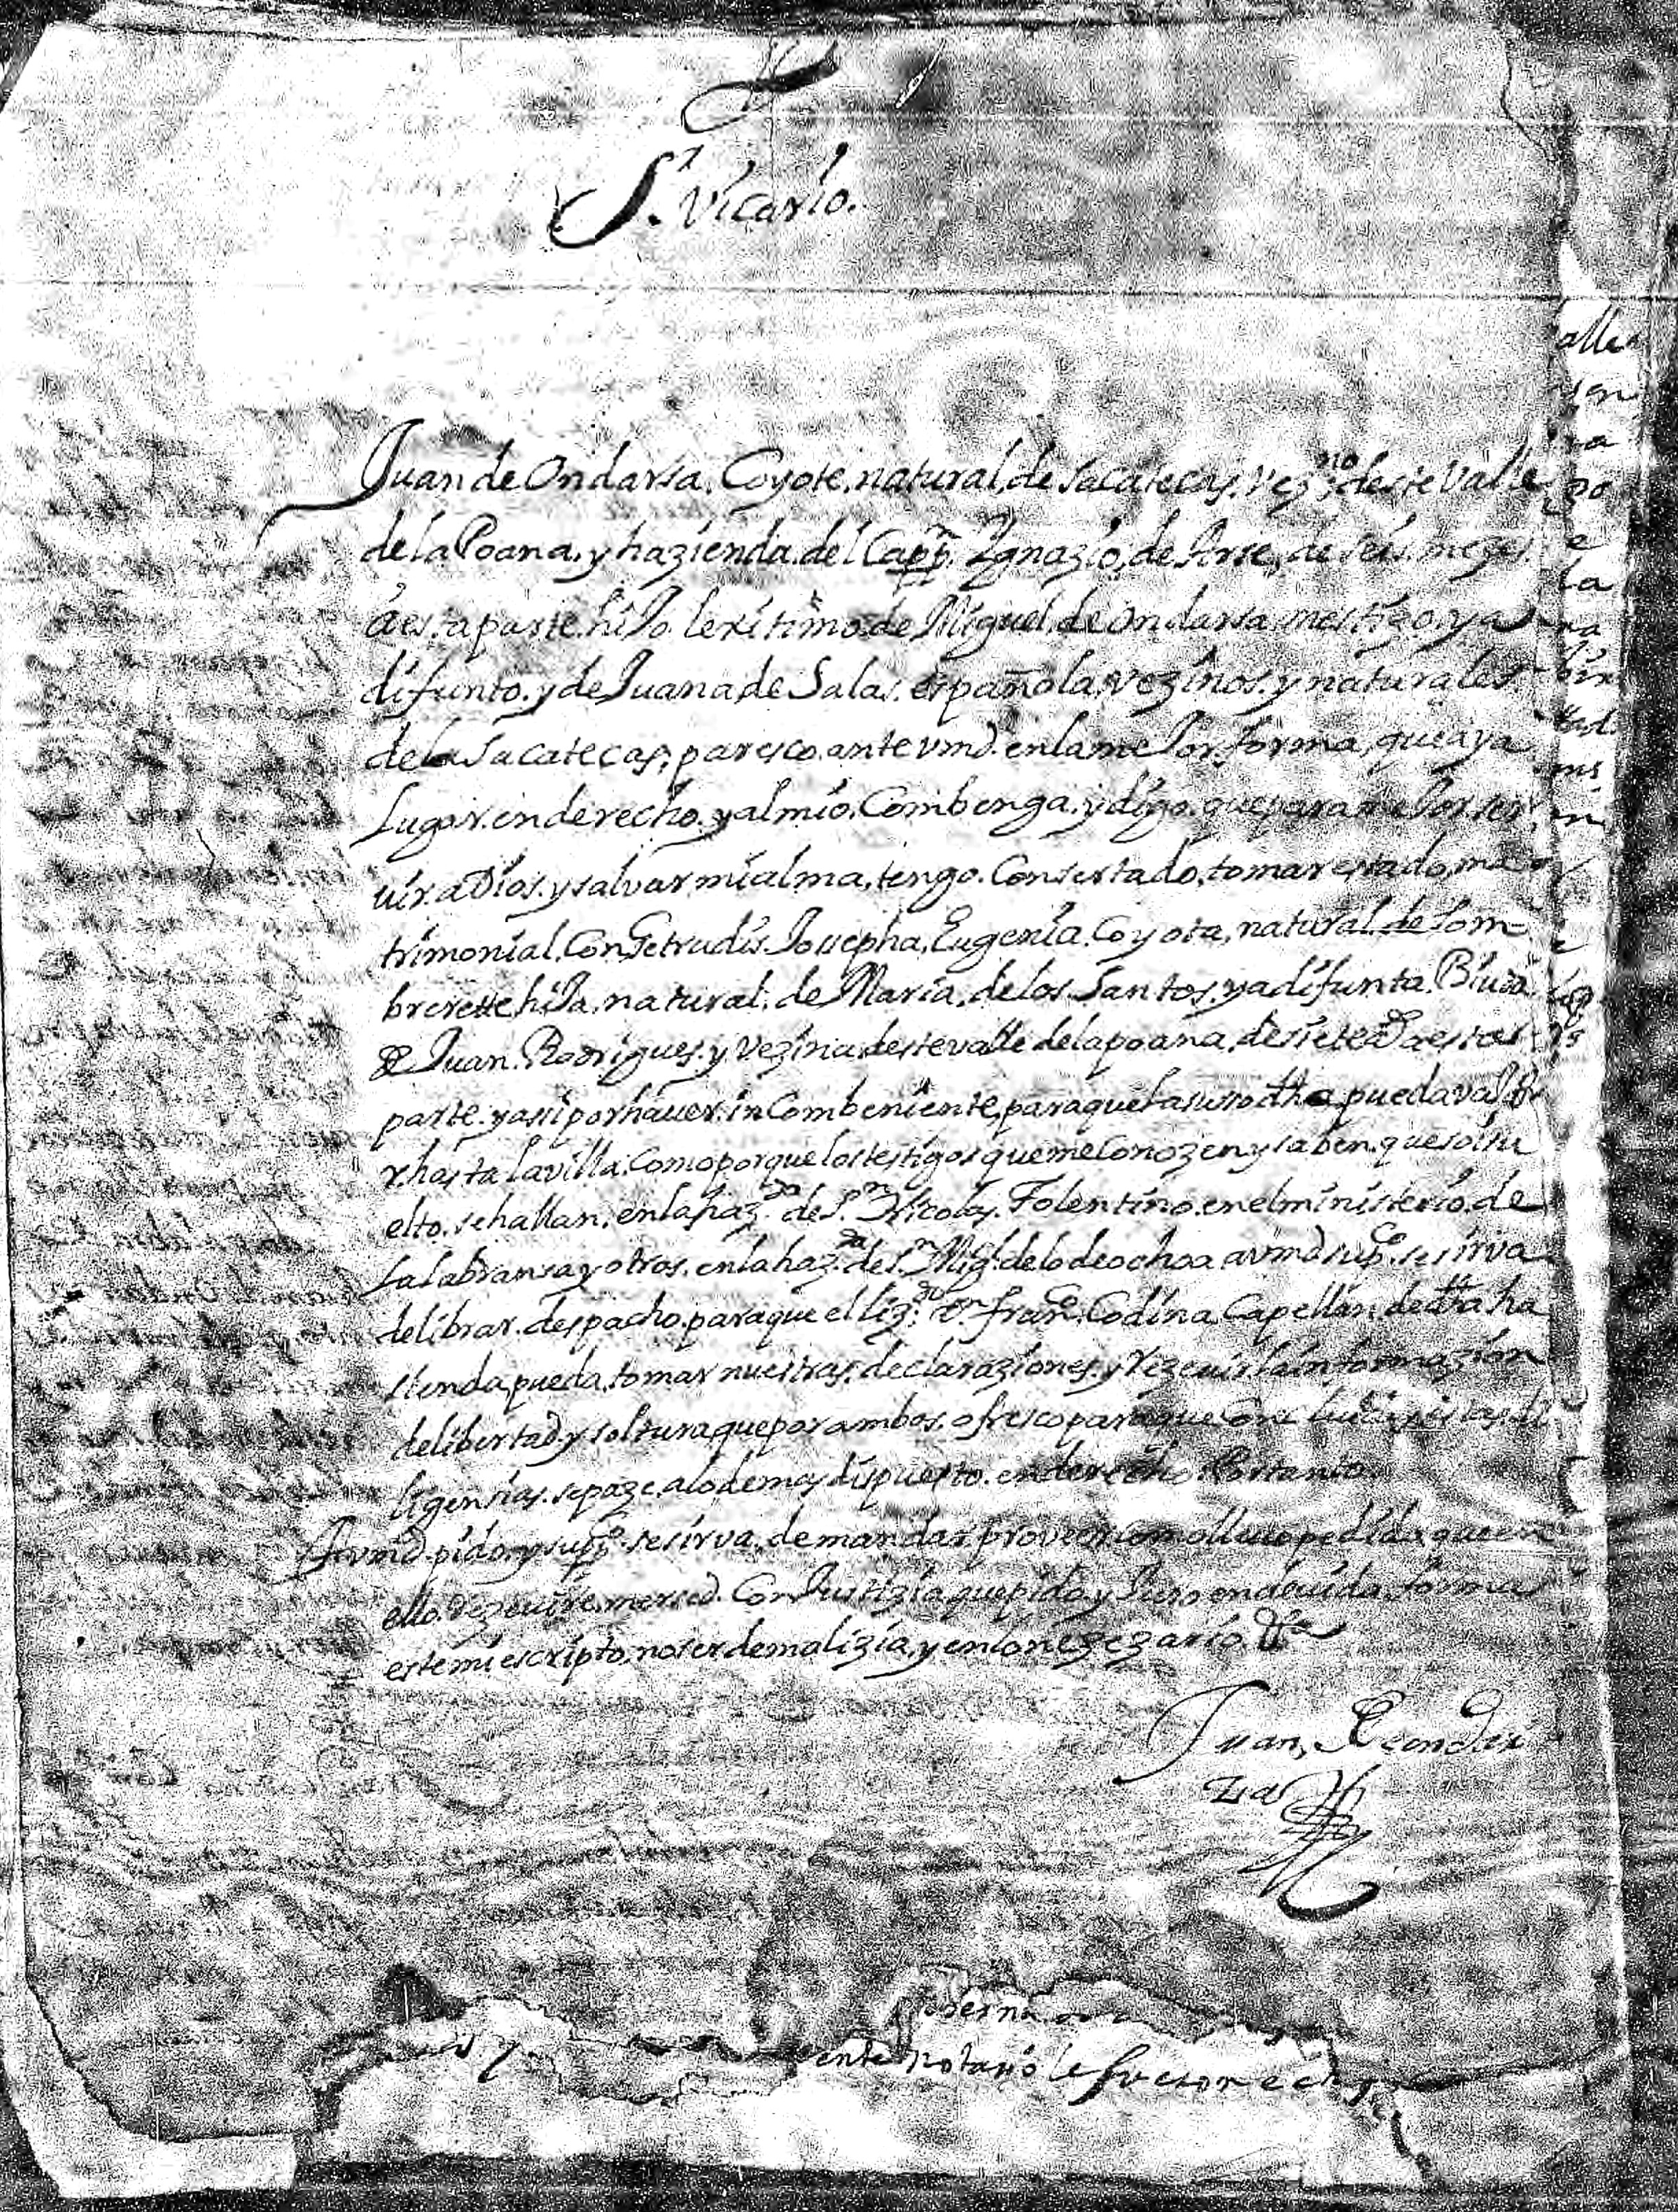 S.r Vicario.
Juan de Ondarsa, Coyote, natural, de Sacatecas, Vez.no deste Valle
de la Poana, y hazienda, del Capp.n Ygnazio, de Arse, de seis, mezes
a esta parte, hiJo lexitimo de Miguel, de Ondarsa, mestizo, ya
difunto, y de Juana de Salas, española, vezinos, y naturales
de la Sacatecas, paresco, ante vmd. en la meJor, forma, que aya
Lugar, en derecho, y al mio, Combenga, y digo, que para meJor ser
uir, a Dios, y salvar mi alma, tengo, Consertado, tomar estado, ma
trimonial, Con Getrudis Josepha, Eugenia, Coyota, natural, de Som-
brerette hiJa, natural, de Maria, de los Santos, ya difunta, Biuda
de Juan Rodrigues, y Vezina deste valle de la poana, de siete a esta
parte, y asi por hauer, in Combeniente, para que la suso dha pueda
r hasta la villa, Como por que los testigos que me Conozen y saben, que soi su
elto, se hallan, en la haz.da de S.n Nicolas, Tolentino, en el ministerio, de
la labransa y otros, en la haz.da de S.n Mig.l de lo de ochoa, a vmd sup.co se sirva
de librar, despacho, para que el liz.do D.n Fran.co Codina, Capellan, de dha ha
sienda, pueda, tomar nuestras, declaraziones, y rezeuir la informazion
de libertad, y soltura que por ambos, ofresco para que di
ligensias, se paze, a lo demas dispuesto, en derecho Por tanto
A vmd. pido, y supp.co se sirva, de mandar, proveer como lleuo pedido, que en
ello, rezeuire, mersed, Con Justizia, que pido, y Juro en deuida, forma
este mi escripto, no ser de malizia, y en lo nezezario &a
Juan, de ondar
za
ente notario